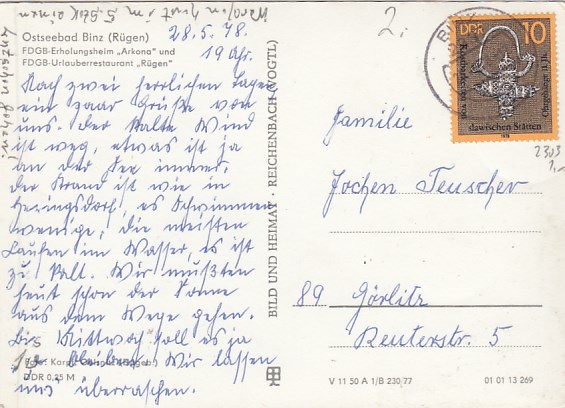 Ostseebad Binz (Rügen)
FDGB-Erholungsheim „Arkona" und
FDGB-Urlauberrestaurant „Rügen"
28.5.78.
19 Uhr.
Nach zwei herrlichen Tagen
ein paar Grüße von
uns. Der kalte Wind
ist weg, etwas ist ja
an der See immer.
Der Strand ist wie in
Heringsdorf, es Schwimmen
wenige, die meisten
Laufen im Wasser, es ist
zu kalt. Wir mußten
heut schon der Sonne
aus dem Wege gehen.
Bis Mittwoch soll es ja
so bleiben. Wir lassen
uns überraschen.
DDR 0,25 M
BILD UND HEIMAT · REICHENBACH (VOGTL)
2.
DDR 10
slawischen Stätten
1978
2303
1,-
Familie
Jochen Teuscher
89 Görlitz
Reuterstr. 5
V 11 50 A 1/B 230/77
01 01 13 269